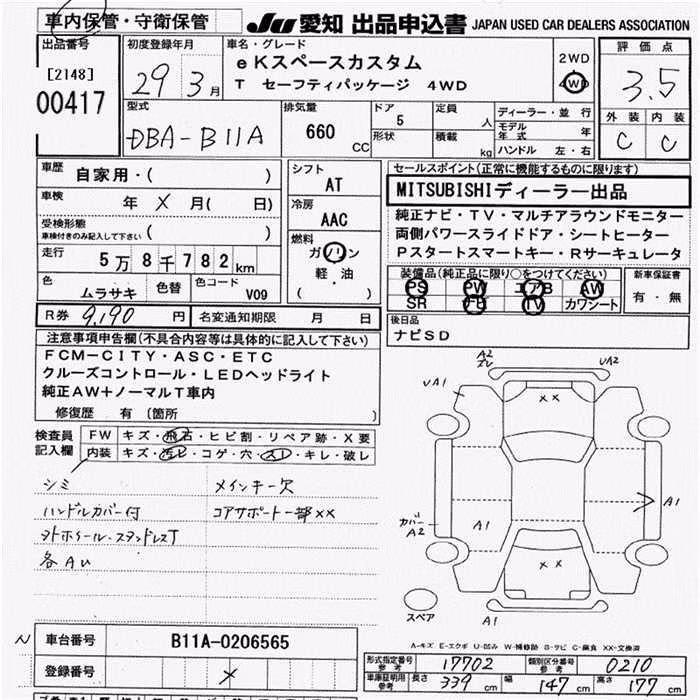 車内保管・守衛保管
JU 愛知 出品申込書 JAPAN USED CAR DEALERS ASSOCIATION
出品番号
[2148]
00417
初度登録年月
29 3月
車名・グレード
eKスペースカスタム
T セーフティパッケージ 4WD
2WD
4WD
評価点
3.5
外装 内装
C C
型式
DBA-B11A
排気量
660 CC
ドア
5
形状
定員
人
積載
kg
ディーラー・並行
モデル年式 年
ハンドル 左・右
車歴
自家用・( )
車検
年 X 月( 日)
受検形態
車検付きのみ記入して下さい ( )
走行
5万8千782km
色
ムラサキ
色替
色コード
V09
シフト
AT
冷房
AAC
燃料
ガソリン
軽・油
( )
セールスポイント(正常に機能するものに限ります)
MITSUBISHIディーラー出品
純正ナビ・TV・マルチアラウンドモニター
両側パワースライドドア・シートヒーター
Pスタートスマートキー・Rサーキュレータ
装備品(純正品に限り○をつけてください)
PS PW エアB AW
SR TV カワシート
新車保証書
有・無
R券 9,190 円
名変通知期限 月 日
後日品
ナビSD
注意事項申告欄(不具合内容等は具体的に記入して下さい)
FCM-CITY・ASC・ETC
クルーズコントロール・LEDヘッドライト
純正AW+ノーマルT車内
修復歴 有 〔箇所 〕
検査員記入欄
FW キズ・飛石・ヒビ割・リペア跡・X要
内装 キズ・汚レ・コゲ・穴・スレ・キレ・破レ
シミ
ハンドルカバー付
各AU
メインキー欠
コアサポート一部XX
A2
UA2
UA1
A1
XX
カバー
A2
A1
A1
XX
スペア
A1
A-キズ E-エクボ U-凹み W-補修跡 S-サビ C-腐食 XX-交換済
車台番号
B11A-0206565
登録番号
X
形式指定番号 参考
17702
類別区分番号 参考
0210
車庫証明用 参考
長さ 339 cm
幅 147 cm
高さ 177 cm